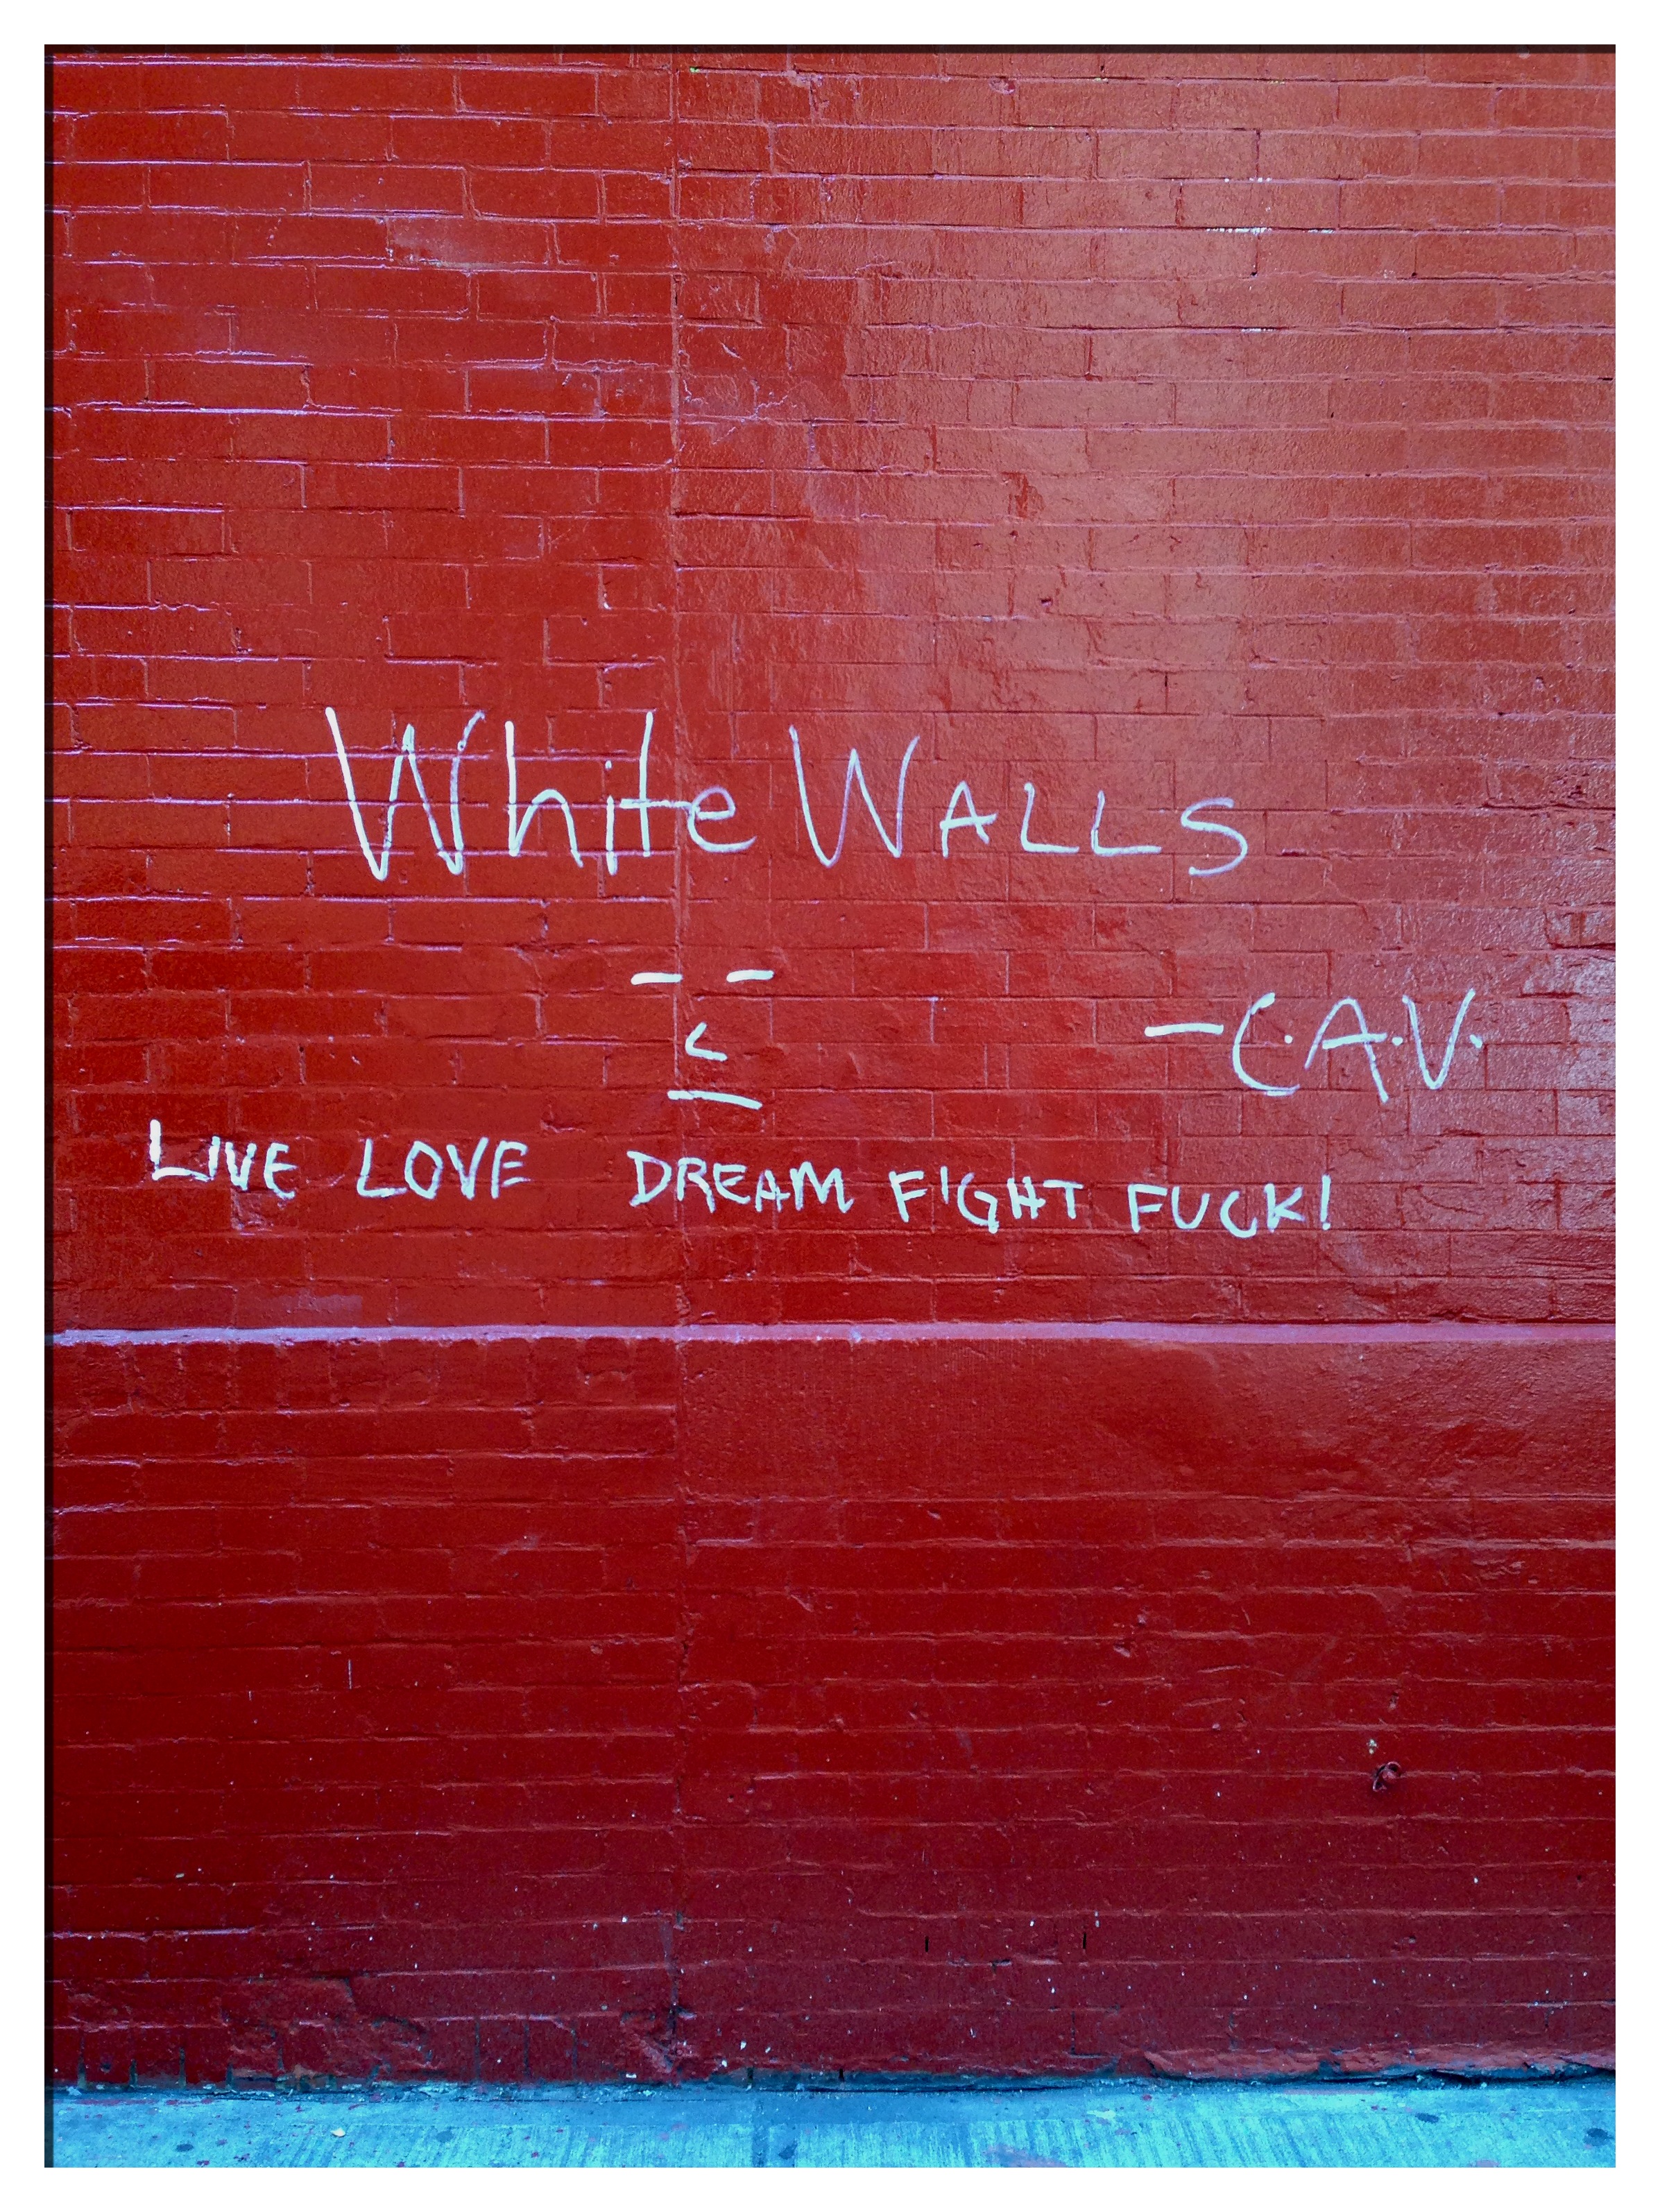 White WALLS
-C.A.V.
LIVE LOVE DREAM FIGHT FUCK!